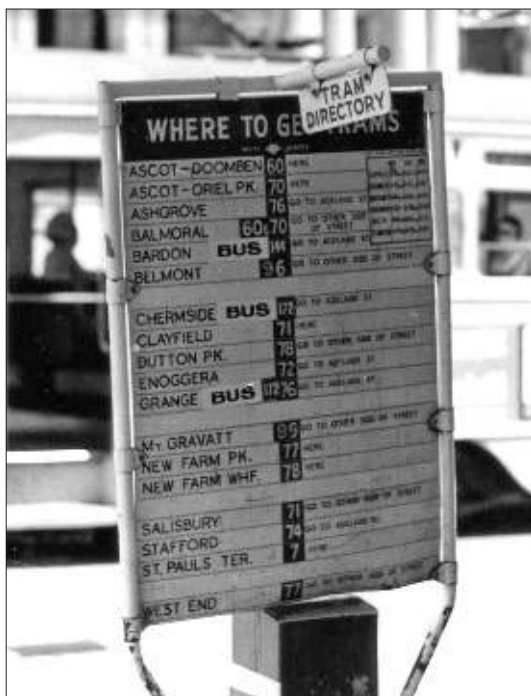 TRAM
DIRECTORY
WHERE TO GE TRAMS
ASCOT-DOOMBEN 60 HERE
ASCOT-ORIEL PK. 70 HERE
ASHGROVE 76 GO TO ADELAIDE ST
BALMORAL 60&70 GO TO OTHER SIDE OF STREET
BARDON BUS 144 GO TO ADELAIDE ST
BELMONT 96 GO TO OTHER SIDE OF STREET
CHERMSIDE BUS 172 GO TO ADELAIDE ST
CLAYFIELD 71 HERE
DUTTON PK. 78 GO TO OTHER SIDE OF STREET
ENOGGERA 72 GO TO ADELAIDE ST
GRANGE BUS 172 76 GO TO ADELAIDE ST
MT. GRAVATT 95 GO TO OTHER SIDE OF STREET
NEW FARM PK. 77 HERE
NEW FARM WHF. 78 HERE
SALISBURY 71 GO TO OTHER SIDE OF STREET
STAFFORD 74 GO TO ADELAIDE ST
ST. PAULS TER. 7 HERE
WEST END 77 GO TO OTHER SIDE OF STREET